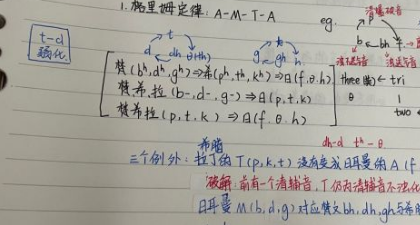 1.格里姆定律: A-M-T-A eg. 清擦音
t-d
强化
t k p
d dh θ(th) g gh h b bh f
清塞音
梵(bʰ,dʰ,gʰ)⇒希(pʰ,tʰ,kʰ)⇒日(f.θ.h) three ← tri
梵希拉(b-,d-,g-)⇒日(p,t,k) θ 1
梵希拉(p,t,k)⇒日(f.θ.h) two
希腊 dh-d th-θ
三个例外: 拉丁的T(p,k,t)没有变成日耳曼的A(f
破解:前有一个清辅音,T仍为清辅音不浊化
日耳曼M(b,d,g)对应梵文bh,dh,gh与希腊